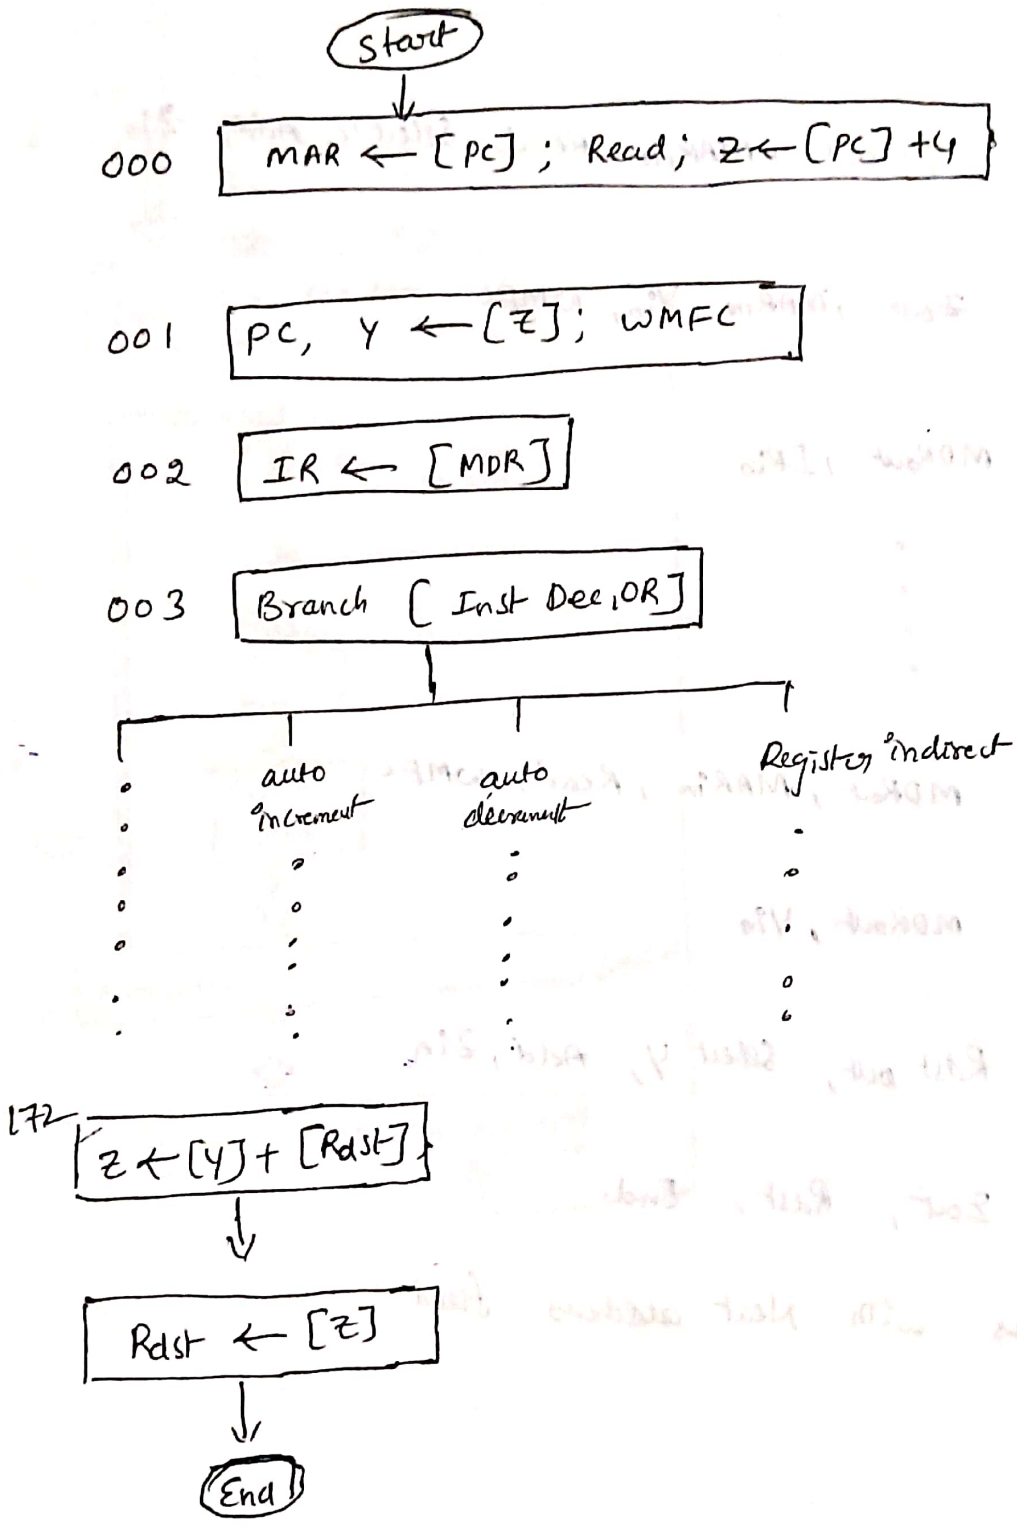 Start
000 MAR ← [PC] ; Read; Z ← [PC] +4
001 PC, Y ← [Z]; WMFC
002 IR ← [MDR]
003 Branch [ Inst Dec, OR]
auto increment
auto decrement
Register indirect
172
Z ← [Y] + [Rdst]
Rdst ← [Z]
End